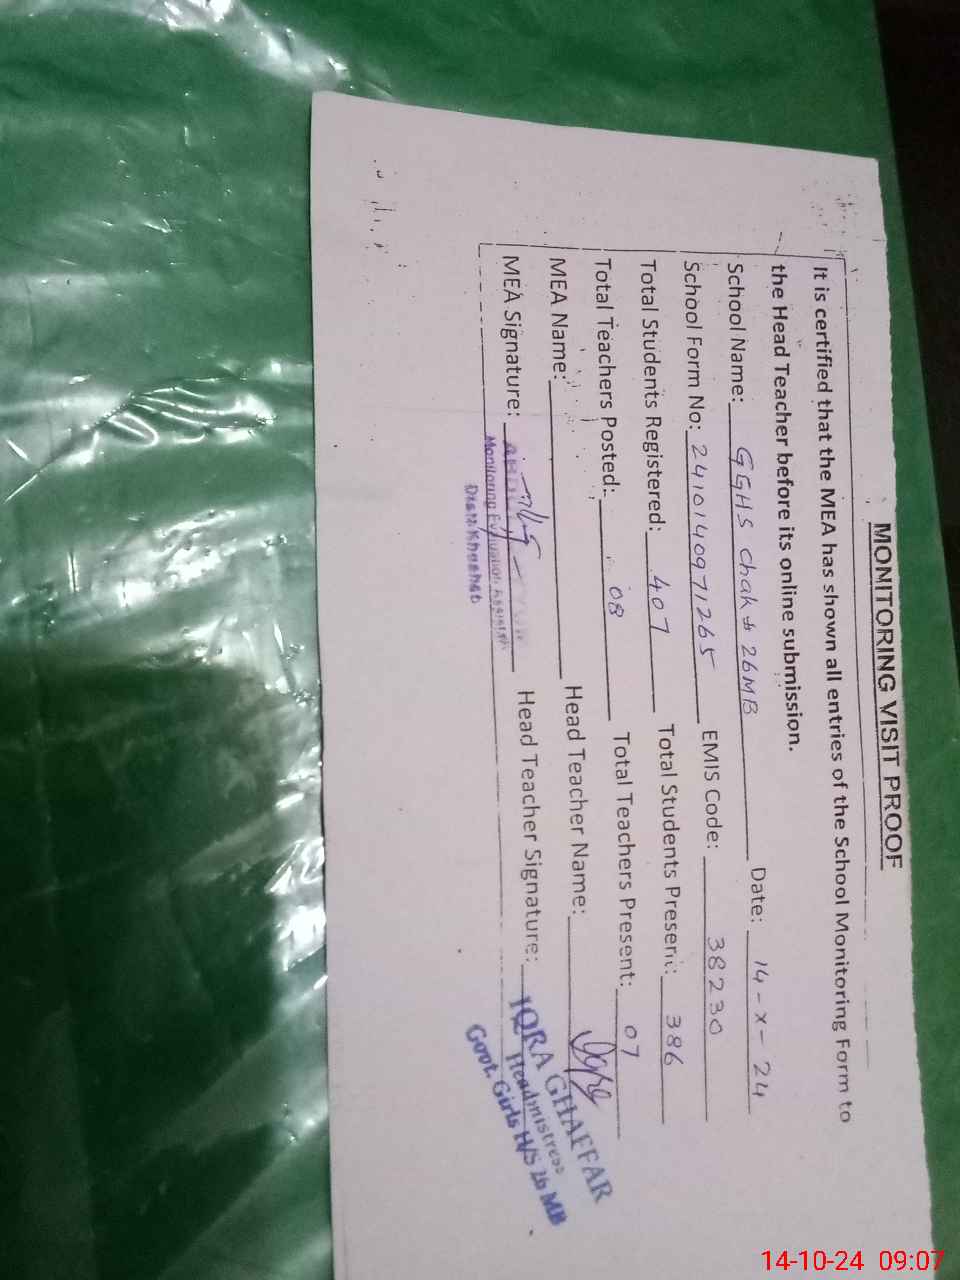 MONITORING VISIT PROOF
It is certified that the MEA has shown all entries of the School Monitoring Form to
the Head Teacher before its online submission.
School Name: GGHS Chak 26MB Date: 14-X-24
School Form No: 2410140971265 EMIS Code: 38230
Total Students Registered: 407 Total Students Present: 386
Total Teachers Posted: 08 Total Teachers Present: 07
MEA Name: Head Teacher Name:
MEA Signature: Head Teacher Signature:
Monitoring Evaluation Assistant
Distt. Khushab
IQRA GHAFFAR
Headmistress
Govt. Girls H/S 26 MB
14-10-24 09:07